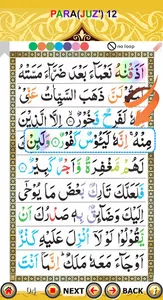 PARA(JUZ') 12
no loop
اَذَقْنٰهُ نَعْمَآءَ بَعْدَ ضَرَّآءَ مَسَّتْهُ
ذَهَبَ السَّيِّاٰتُ
لَفَرِحٌ فَخُوْرٌ اِلَّا الَّذِيْنَ
مِنْهُ اِنَّهٗ لَيَـُٔوْسٌ كَفُوْرٌ وَلَئِنْ
لَهُمْ مَّغْفِرَةٌ وَّاَجْرٌ كَبِيْرٌ
فَلَعَلَّكَ تَارِكٌۢ بَعْضَ مَا يُوْحٰٓى
اِلَيْكَ وَضَآئِقٌۢ بِهٖ صَدْرُكَ اَنْ
يَّقُوْلُوْا لَوْلَآ اُنْزِلَ عَلَيْهِ كَنْزٌ
اَوْ جَآءَ مَعَهٗ مَلَكٌ اِنَّمَآ اَنْتَ
94 NEXT BACK 1